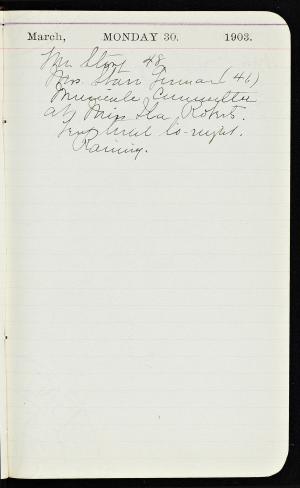 March, MONDAY 30. 1903.
Mr Story 48
Mrs Starr (46)
Musicale Committee
at Miss Ida Roberts.
tired to-night.
Raining.